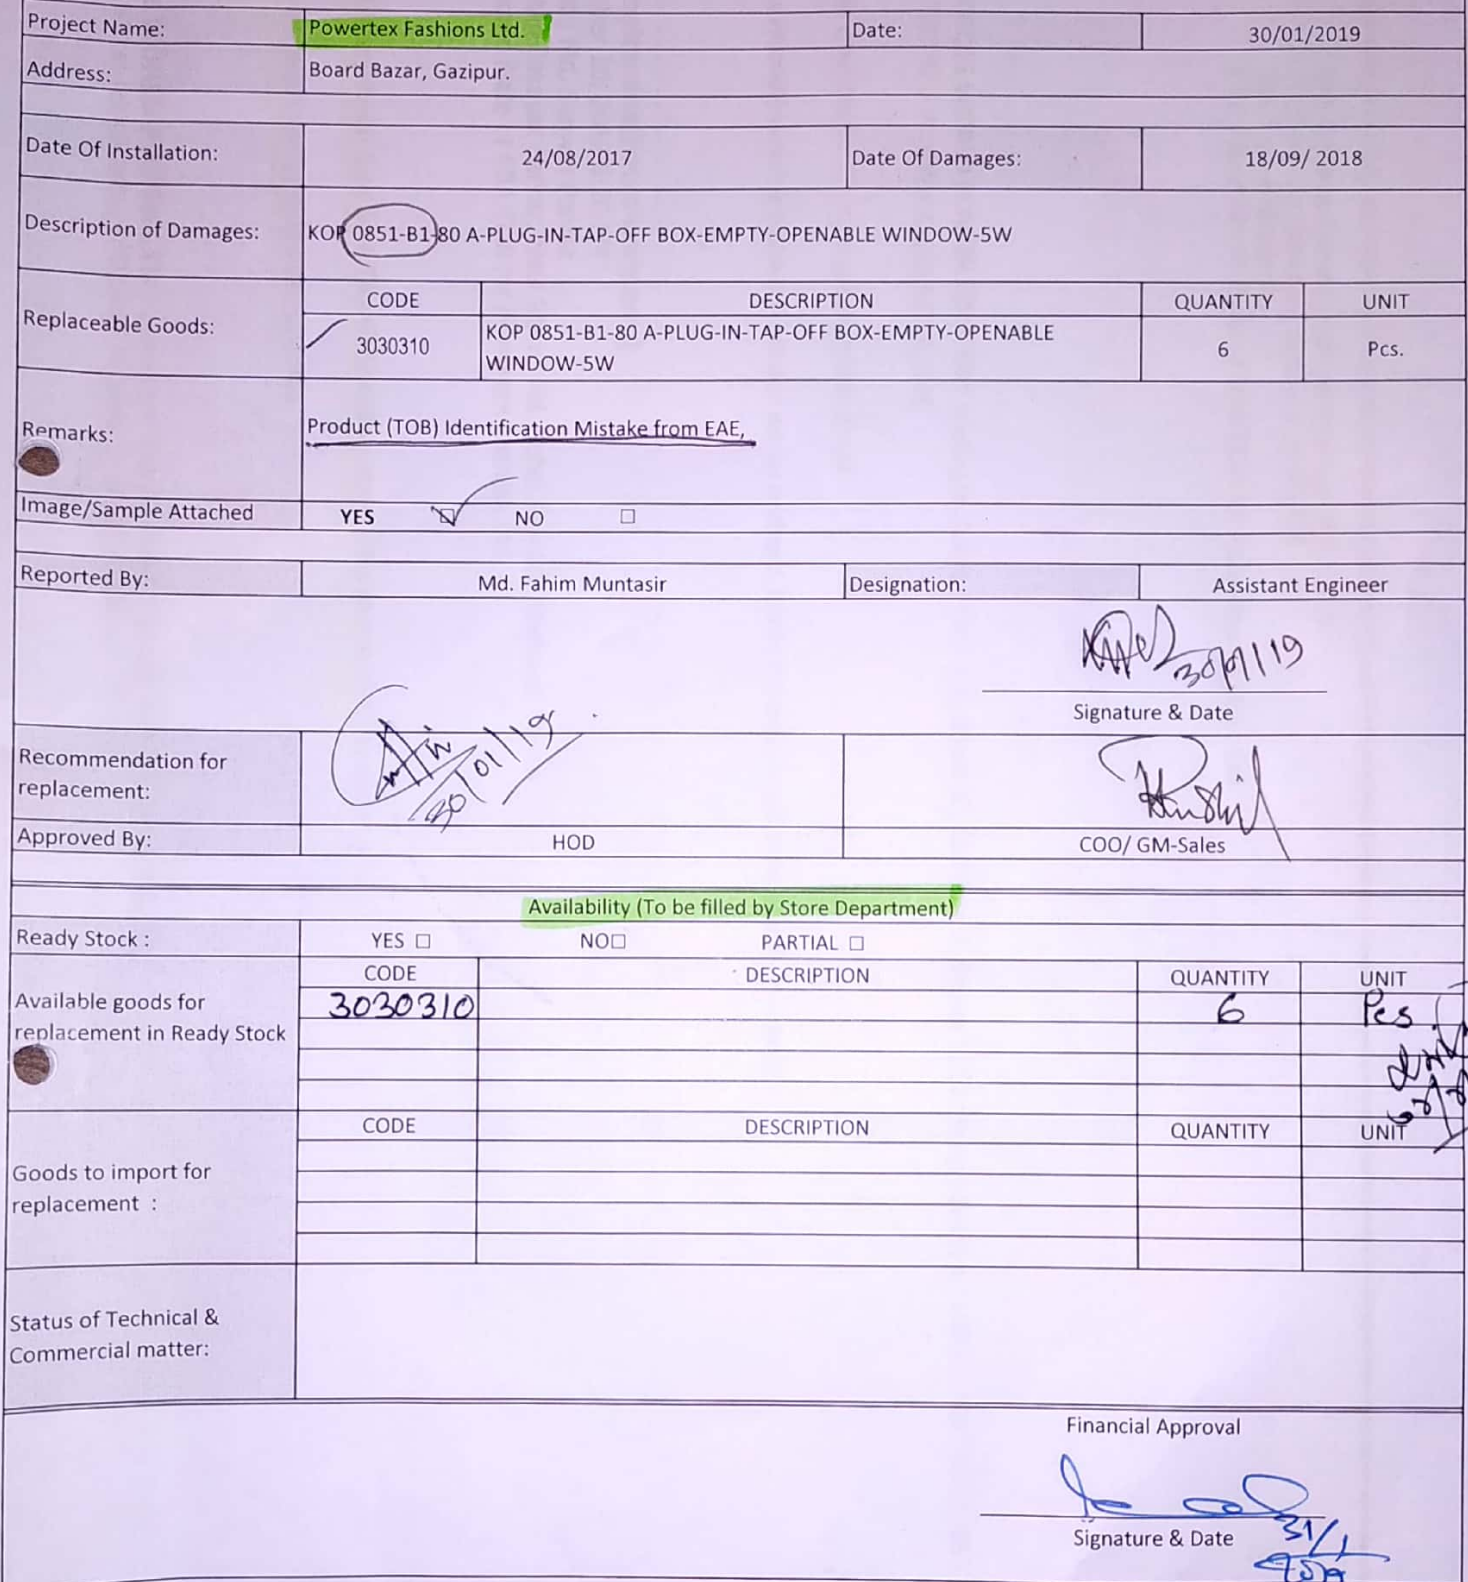 Project Name: Powertex Fashions Ltd. Date: 30/01/2019
Address: Board Bazar, Gazipur.
Date Of Installation: 24/08/2017 Date Of Damages: 18/09/ 2018
Description of Damages: KOP 0851-B1-80 A-PLUG-IN-TAP-OFF BOX-EMPTY-OPENABLE WINDOW-5W
Replaceable Goods: CODE DESCRIPTION QUANTITY UNIT
3030310 KOP 0851-B1-80 A-PLUG-IN-TAP-OFF BOX-EMPTY-OPENABLE 6 Pcs.
WINDOW-5W
Remarks: Product (TOB) Identification Mistake from EAE,
Image/Sample Attached YES ☑ NO ☐
Reported By: Md. Fahim Muntasir Designation: Assistant Engineer
30/01/19
Signature & Date
30/01/19
Recommendation for
replacement:
Approved By: HOD COO/ GM-Sales
Availability (To be filled by Store Department)
Ready Stock : YES ☐ NO☐ PARTIAL ☐
CODE DESCRIPTION QUANTITY UNIT
Available goods for
replacement in Ready Stock
3030310 6 Pcs
CODE DESCRIPTION QUANTITY UNIT
Goods to import for
replacement :
Status of Technical &
Commercial matter:
Financial Approval
Signature & Date
31/1